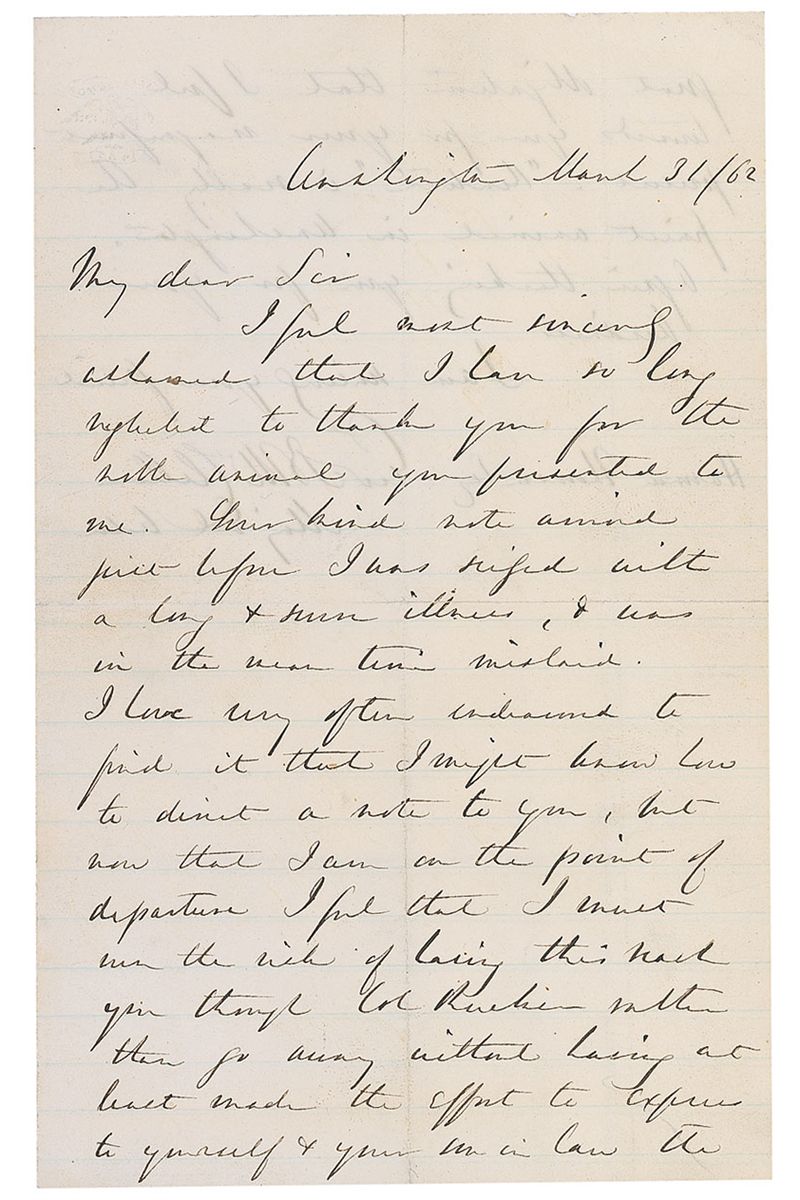 Washington March 31/62
My dear Sir
I feel most sincerely
ashamed that I have so long
neglected to thank you for the
noble animal you presented to
me. Your kind note arrived
just before I was seized with
a long & severe illness, & was
in the mean time mislaid.
I have very often endeavored to
find it that I might know how
to direct a note to you, but
now that I am on the point of
departure I feel that I must
run the risk of having this reach
you through Col Rucker rather
than go away without having at
least made the effort to express
to yourself & your son in law the